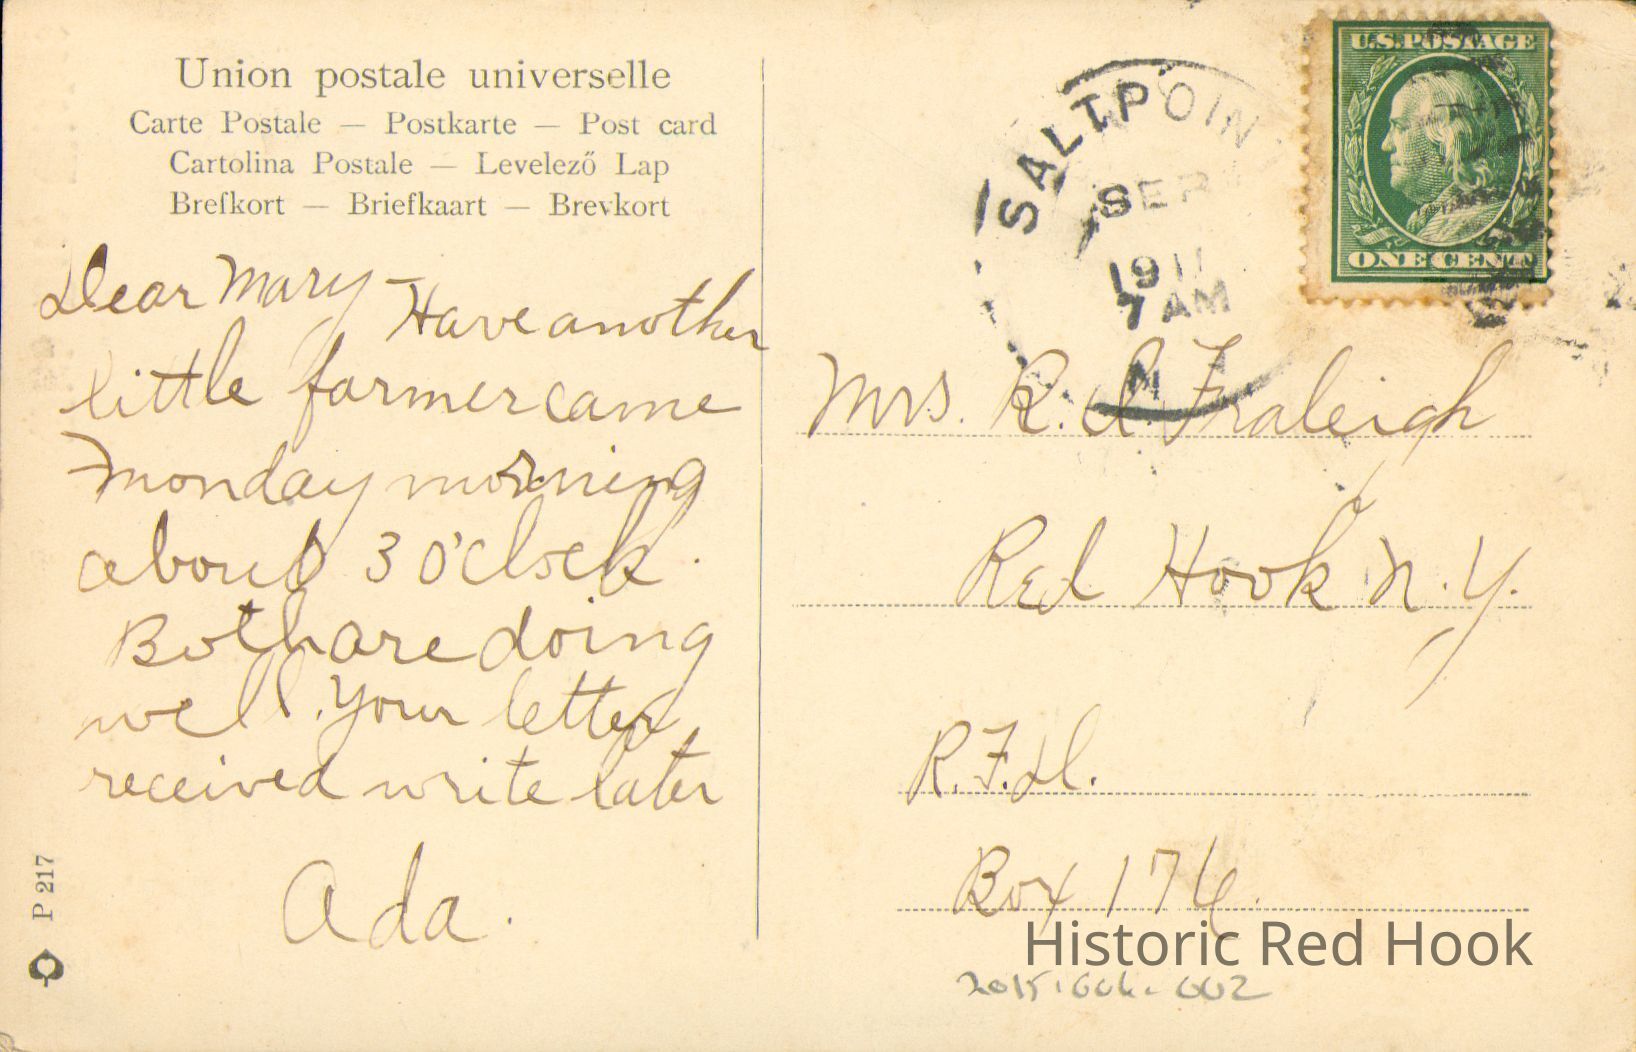 Union postale universelle
Carte Postale — Postkarte — Post card
Cartolina Postale — Levelező Lap
Brefkort — Briefkaart — Brevkort
Dear Mary
Have another
little farmer came
Monday morning
about 3 o'clock.
Both are doing
well. Your letter
received write later
Ada.
P 217
SALT POIN
SEP
1911
7 AM
N
U.S. POSTAGE
ONE CENT
Mrs. R. d. Fraleigh
Red Hook N.Y.
R.F.D.
Box 176.
Historic Red Hook
2015.006.002